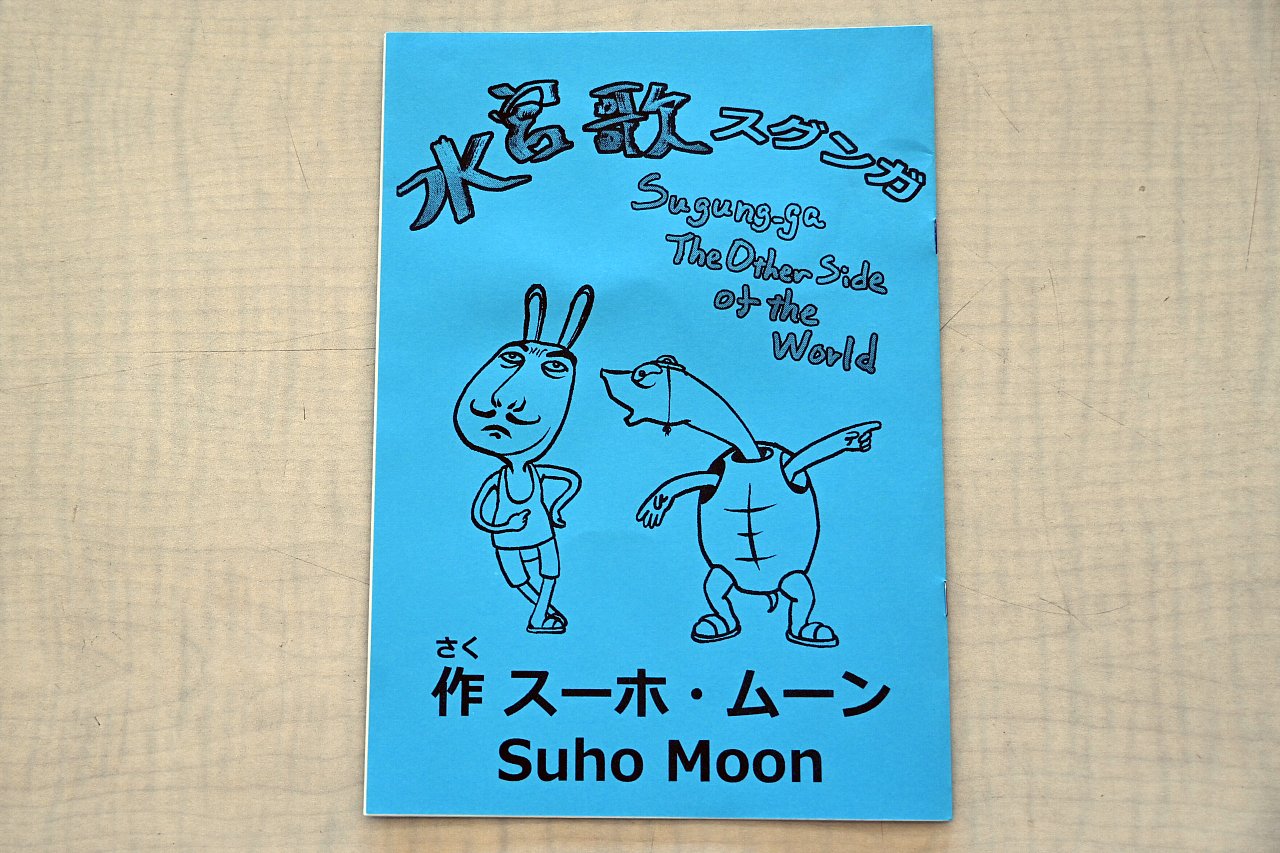 水宮歌 スグンガ
Sugung-ga
The Other Side
of the
World
さく
作 スーホ・ムーン
Suho Moon